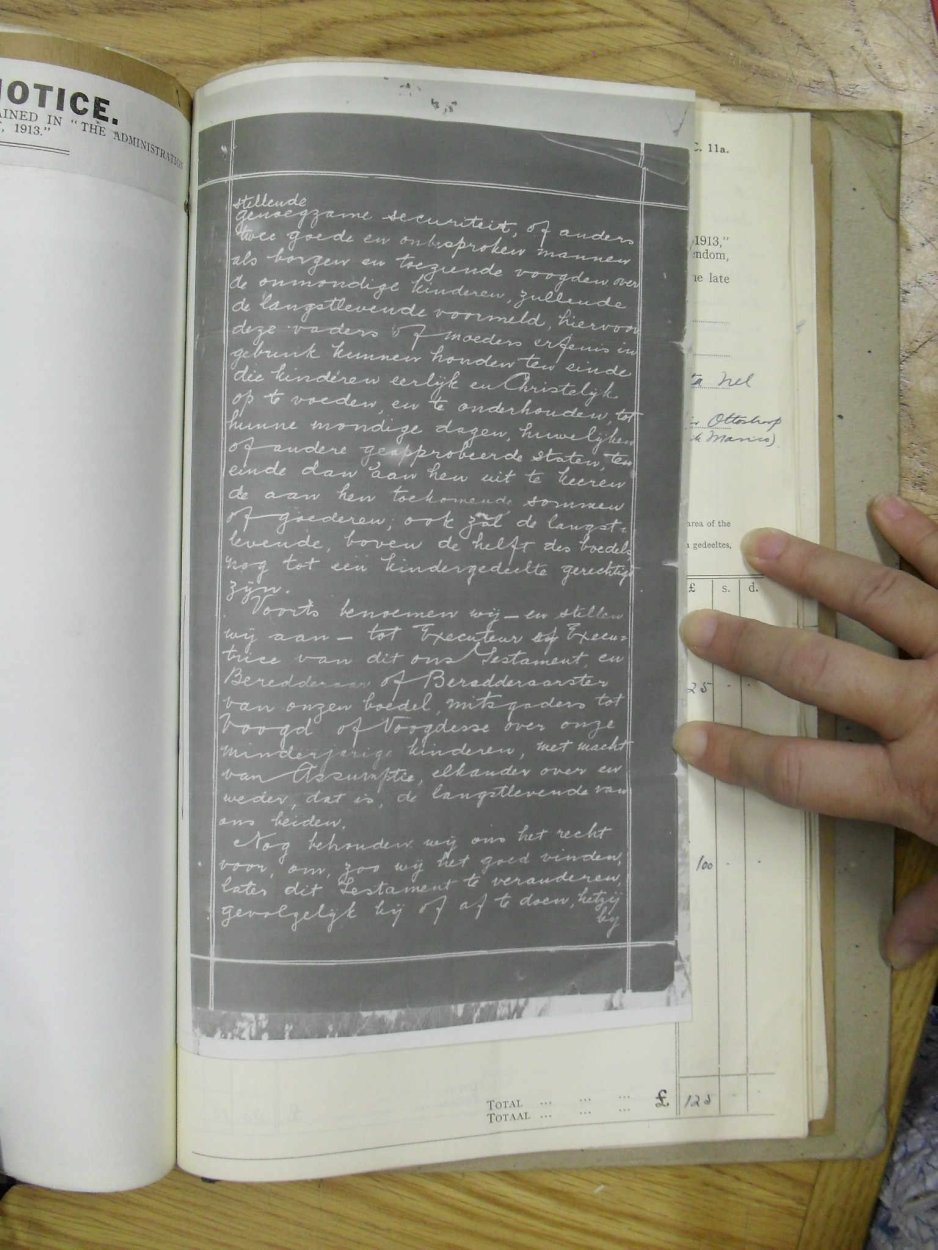 NOTICE.
AINED IN "THE ADMINISTRATION
, 1913."
stellende
genoegzame securiteit, of anders
twee goede en onbesproken mannen
als borgen en toeziende voogden over
de onmondige kinderen, zullende
de langstlevende voormeld, hiervoor
deze vaders of moeders erfenis in
gebruik kunnen houden ten einde
die kinderen eerlijk en Christelijk
op te voeden, en te onderhouden, tot
hunne mondige dagen, huwelijken
of andere geapprobeerde staten, ten
einde dan aan hen uit te keeren
de aan hen toekomende sommen
of goederen; ook zal de langst-
levende, boven de helft des boedels
nog tot een kindergedeelte gerechtigd
zijn.
Voorts benoemen wij – en stellen
wij aan – tot Executeur of Execu-
trice van dit ons Testament, en
Beredderaar of Beredderaarster
van onzen boedel, mitsgaders tot
Voogd of Voogdesse over onze
minderjarige kinderen, met macht
van Assumptie, elkander over en
weder, dat is, de langstlevende van
ons beiden.
Nog behouden wij ons het recht
voor, om, zoo wij het goed vinden,
later dit Testament te veranderen,
gevolgelijk bij of af te doen, hetzij
bij
C. 11a.
1913,"
endom,
he late
ta Nel
Ottoshoop
Marico)
area of the
n gedeeltes,
£ s. d.
25 - -
100 - -
TOTAL ... ... ... £ 125 - -
TOTAAL ... ... ...